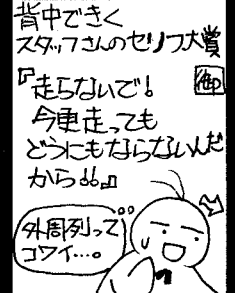 背中できく
スタッフさんのセリフ大賞
『走らないで!
今更走っても
どうにもならないんだ
から!!』
外周列って
コワイ…。